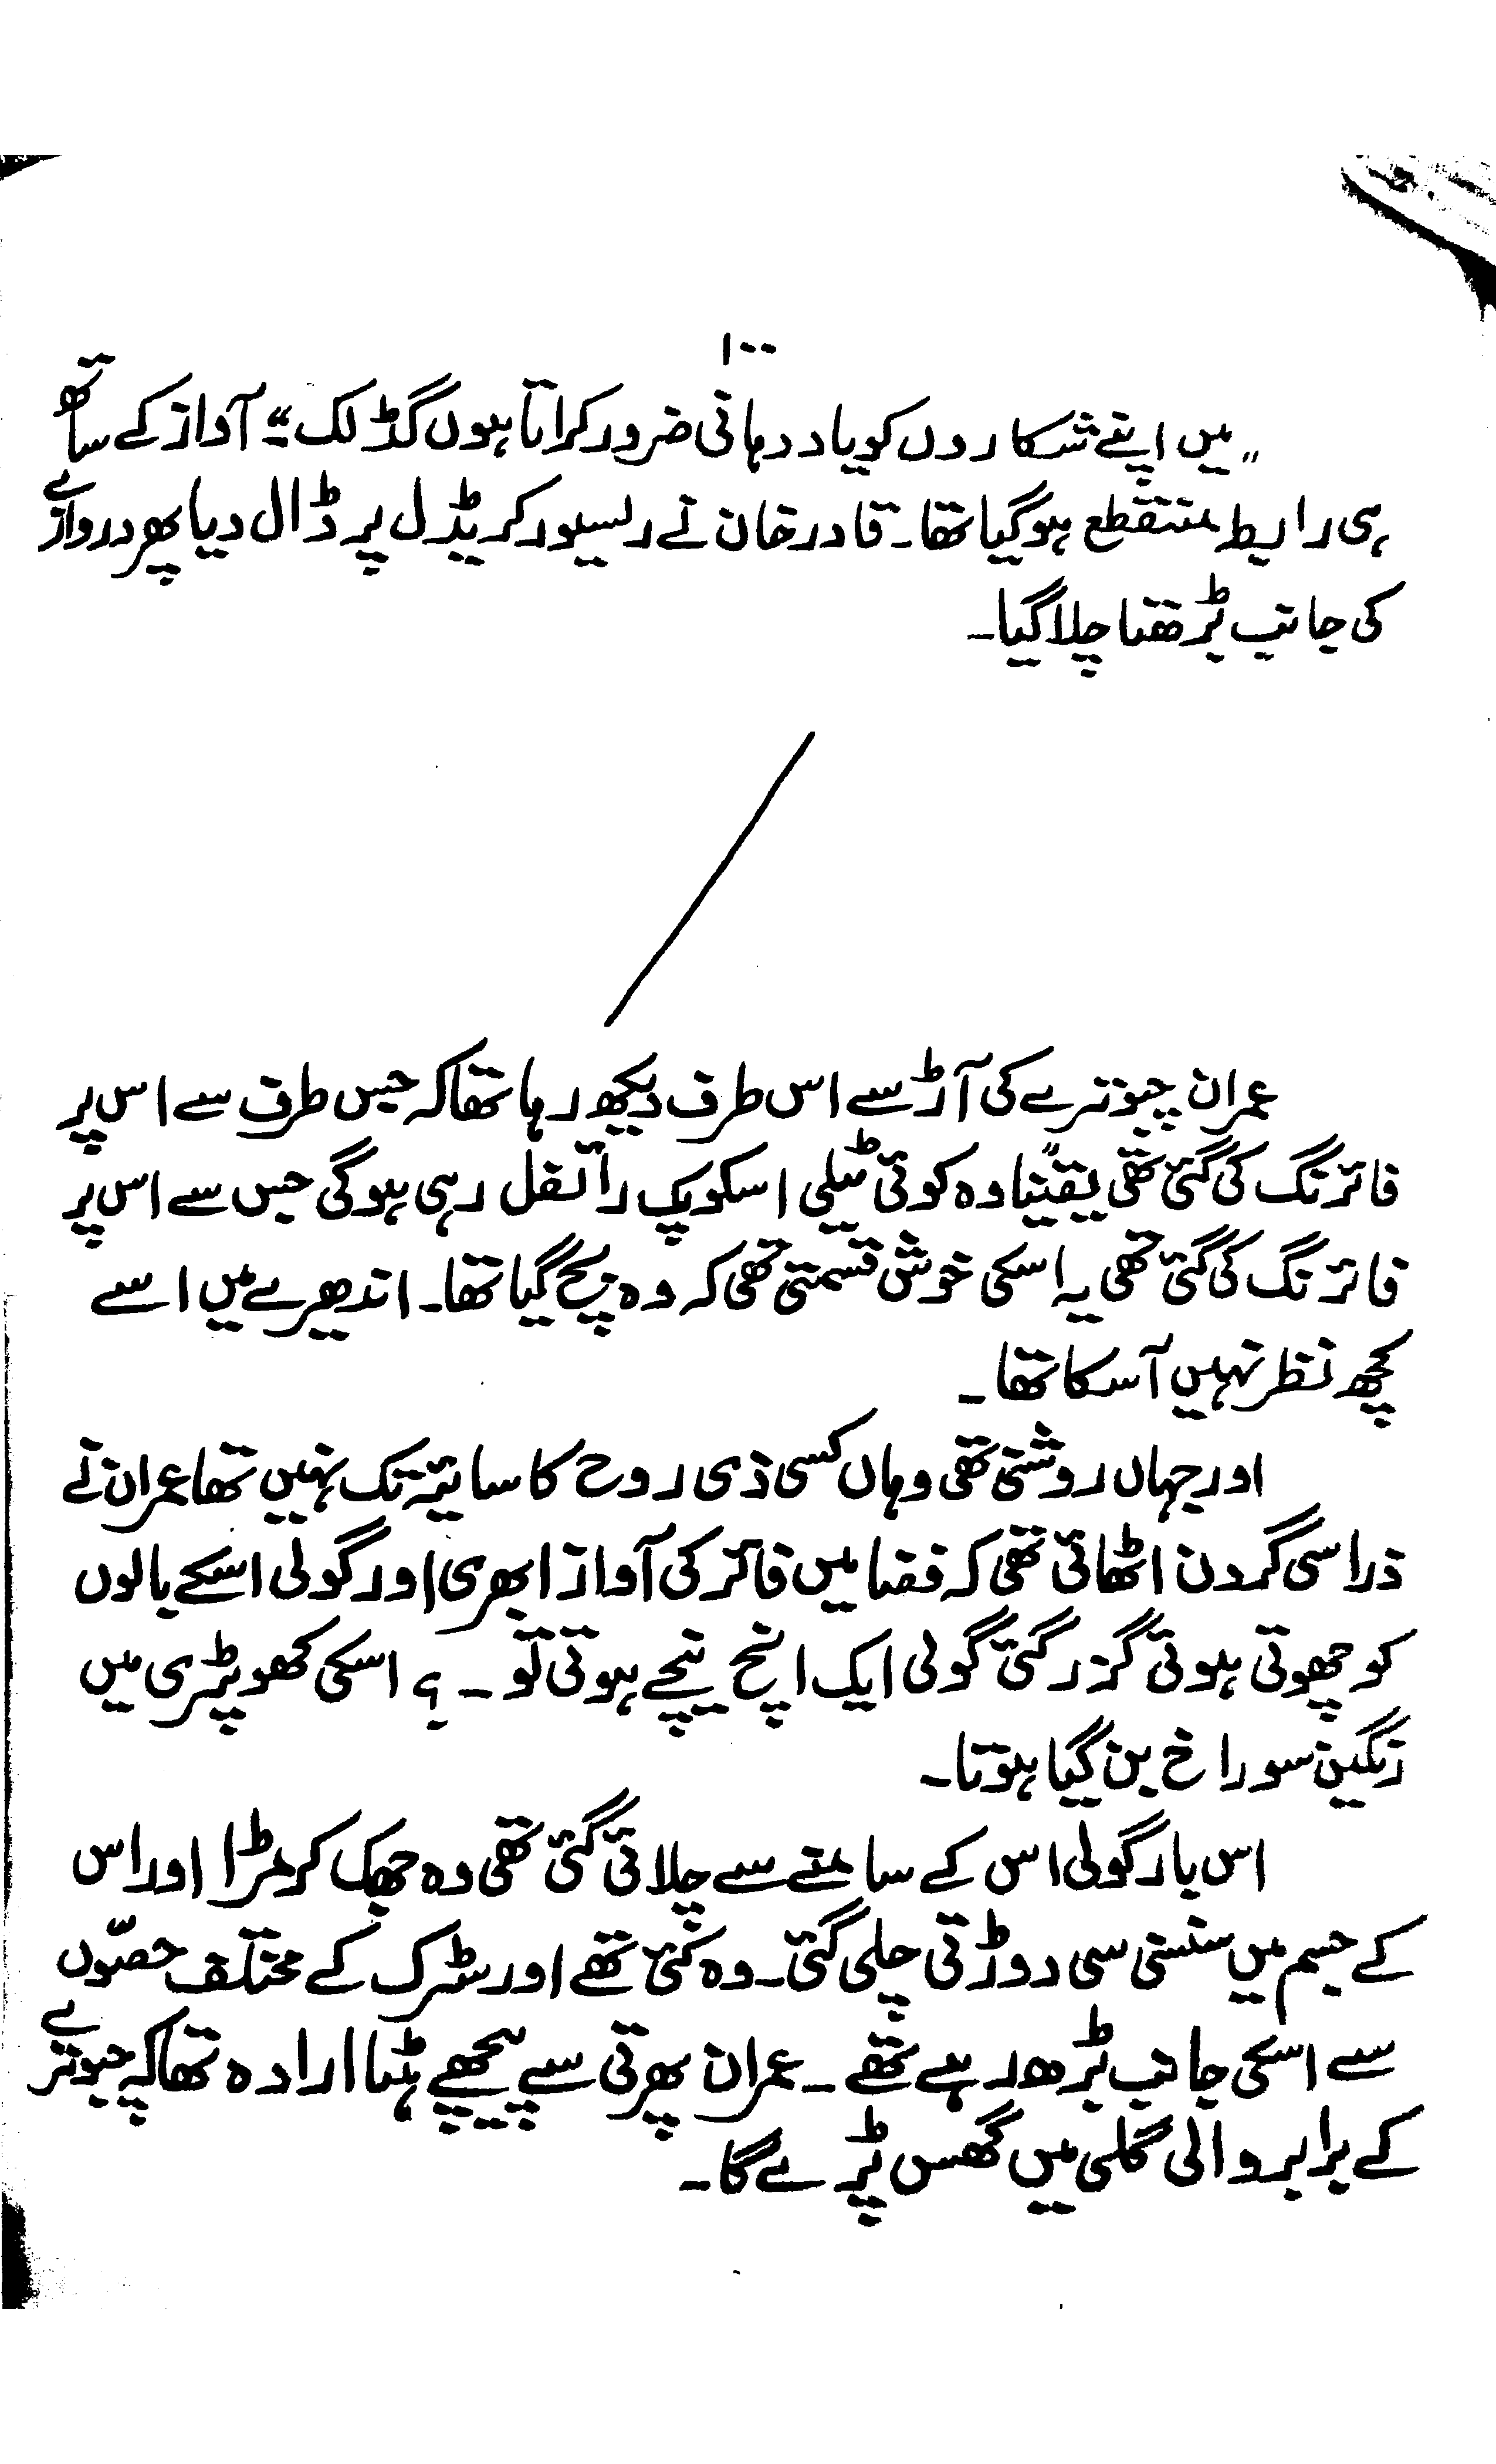 ۱۰۰
„ میں اپنے شکاروں کو یاد دہانی ضرور کراتا ہوں گڈ لک “۔ آواز کے ساتھ
ہی رابطہ منقطع ہوگیا تھا۔ قادر خان نے رسیور کریڈل پر ڈال دیا پھر دروازے
کی جانب بڑھتا چلا گیا۔
عمران چبوترے کی آڑ سے اس طرف دیکھ رہا تھا کہ جس طرف سے اس پر
فائرنگ کی گئی تھی یقیناً وہ کوئی ٹیلی اسکوپک رائفل رہی ہوگی جس سے اس پر
فائرنگ کی گئی تھی یہ اسکی خوش قسمتی تھی کہ وہ بچ گیا تھا۔ اندھیرے میں اسے
کچھ نظر نہیں آسکا تھا۔
اور جہاں روشنی تھی وہاں کسی ذی روح کا سایہ تک نہیں تھا عمران نے
ذرا سی گردن اٹھائی تھی کہ فضا میں فائر کی آواز ابھری اور گولی اسکے بالوں
کو چھوتی ہوئی گزر گئی گولی ایک انچ نیچے ہوتی تو ۔ ؟ اسکی کھوپڑی میں
رنگین سوراخ بن گیا ہوتا۔
اس بار گولی اس کے سامنے سے چلائی گئی تھی وہ جھک کر مڑا اور اس
کے جسم میں سنسنی سی دوڑتی چلی گئی۔ وہ کئی تھے اور سڑک کے مختلف حصّوں
سے اسکی جانب بڑھ رہے تھے ۔ عمران پھرتی سے پیچھے ہٹا ارادہ تھا کہ چبوترے
کے برابر والی گلی میں گھس پڑے گا۔